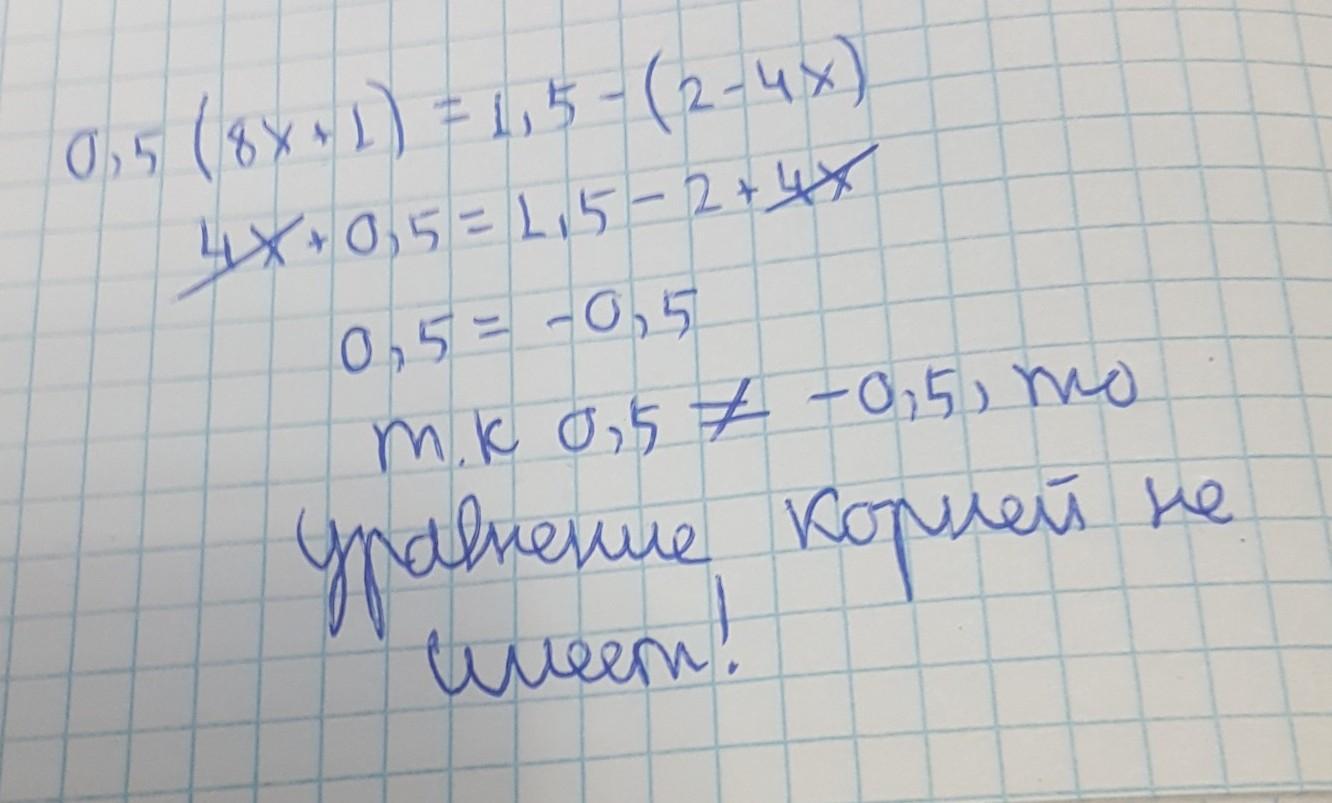 0,5 (8x+1) = 1,5 - (2-4x)
4x + 0,5 = 1,5 - 2 + 4x
0,5 = -0,5
т.к 0,5 ≠ -0,5, то
уравнение корней не
имеет!